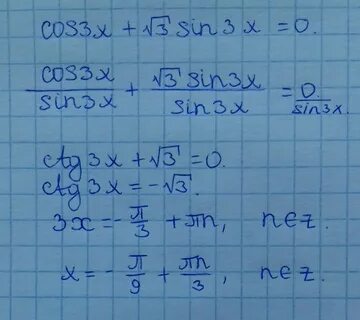 cos3x + √3 sin3x = 0.
cos3x/sin3x + √3 sin3x/sin3x = 0/sin3x.
ctg 3x + √3 = 0.
ctg 3x = -√3.
3x = -π/3 + πn, n∈z.
x = -π/9 + πn/3, n∈z.